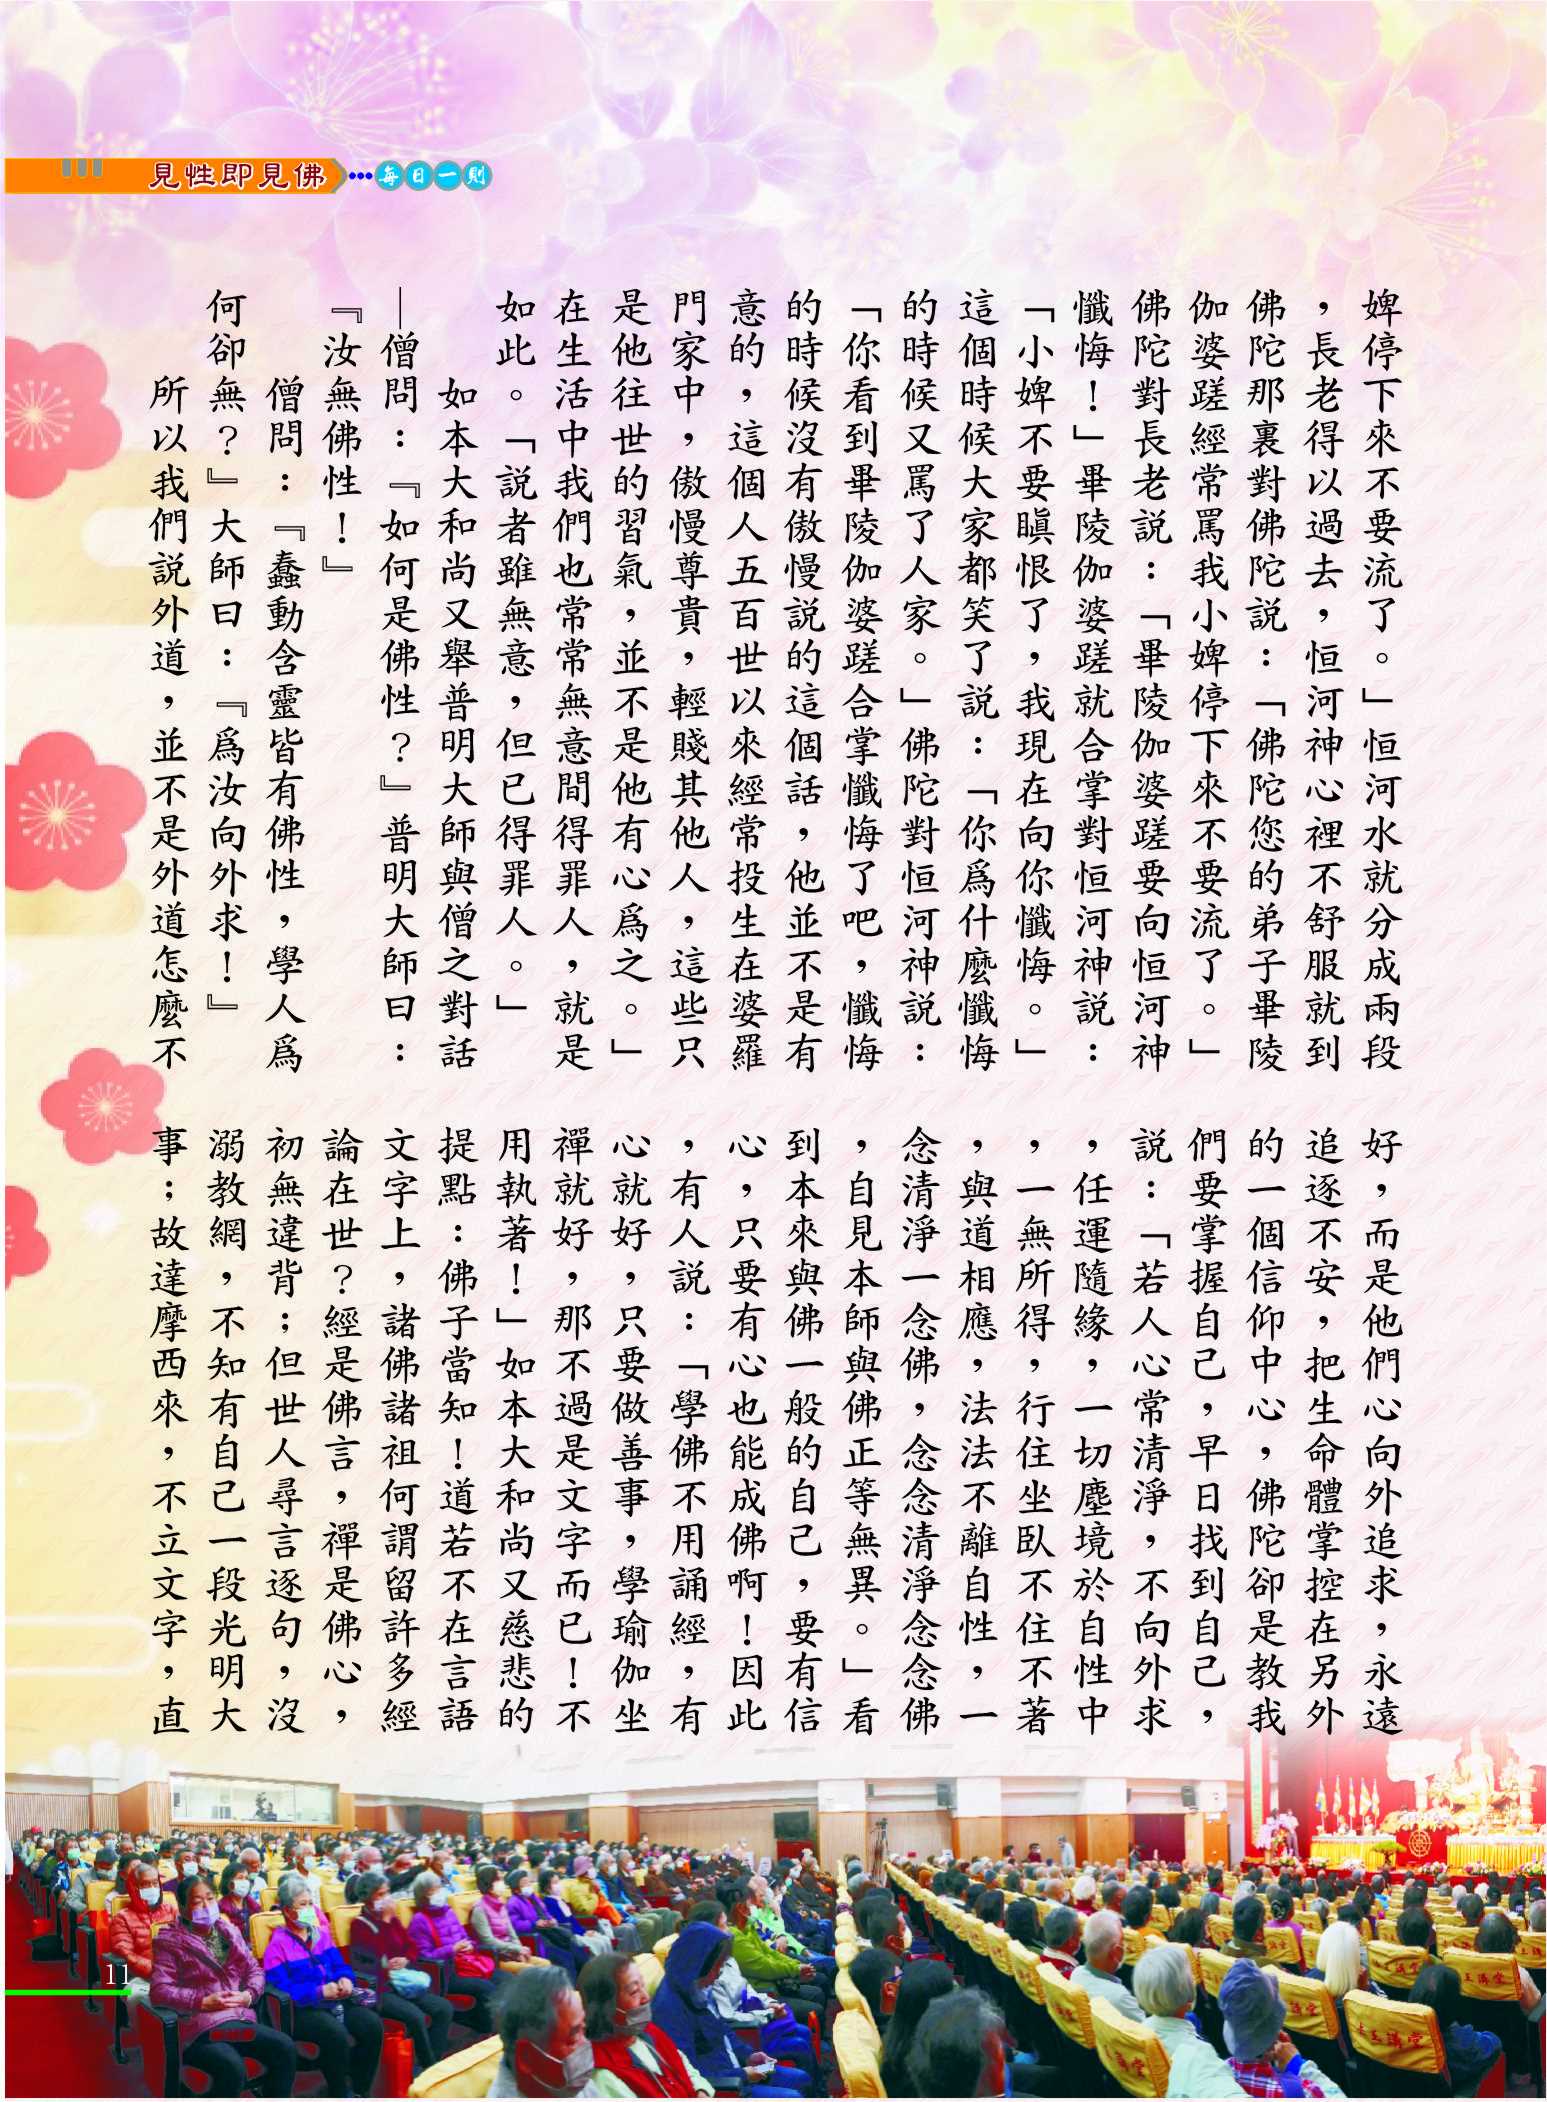 見性即見佛…每日一則
婢停下來不要流了。」恒河水就分成兩段
，長老得以過去，恒河神心裡不舒服就到
佛陀那裏對佛陀說：「佛陀您的弟子畢陵
伽婆蹉經常罵我小婢停下來不要流了。」
佛陀對長老說：「畢陵伽婆蹉要向恒河神
懺悔！」畢陵伽婆蹉就合掌對恒河神說：
「小婢不要瞋恨了，我現在向你懺悔。」
這個時候大家都笑了說：「你為什麼懺悔
的時候又罵了人家。」佛陀對恒河神說：
「你看到畢陵伽婆蹉合掌懺悔了吧，懺悔
的時候沒有傲慢說的這個話，他並不是有
意的，這個人五百世以來經常投生在婆羅
門家中，傲慢尊貴，輕賤其他人，這些只
是他往世的習氣，並不是他有心為之。」
在生活中我們也常常無意間得罪人，就是
如此。「說者雖無意，但已得罪人。」
如本大和尚又舉普明大師與僧之對話
—僧問：『如何是佛性？』普明大師曰：
『汝無佛性！』
僧問：『蠢動含靈皆有佛性，學人為
何卻無？』大師曰：『為汝向外求！』
所以我們說外道，並不是外道怎麼不
好，而是他們心向外追求，永遠
追逐不安，把生命體掌控在另外
的一個信仰中心，佛陀卻是教我
們要掌握自己，早日找到自己，
說：「若人心常清淨，不向外求
，任運隨緣，一切塵境於自性中
，一無所得，行住坐臥不住不著
，與道相應，法法不離自性，一
念清淨一念佛，念念清淨念念佛
，自見本師與佛正等無異。」看
到本來與佛一般的自己，要有信
心，只要有心也能成佛啊！因此
，有人說：「學佛不用誦經，有
心就好，只要做善事，學瑜伽坐
禪就好，那不過是文字而已！不
用執著！」如本大和尚又慈悲的
提點：佛子當知！道若不在言語
文字上，諸佛諸祖何謂留許多經
論在世？經是佛言，禪是佛心，
初無違背；但世人尋言逐句，沒
溺教網，不知有自己一段光明大
事；故達摩西來，不立文字，直
11